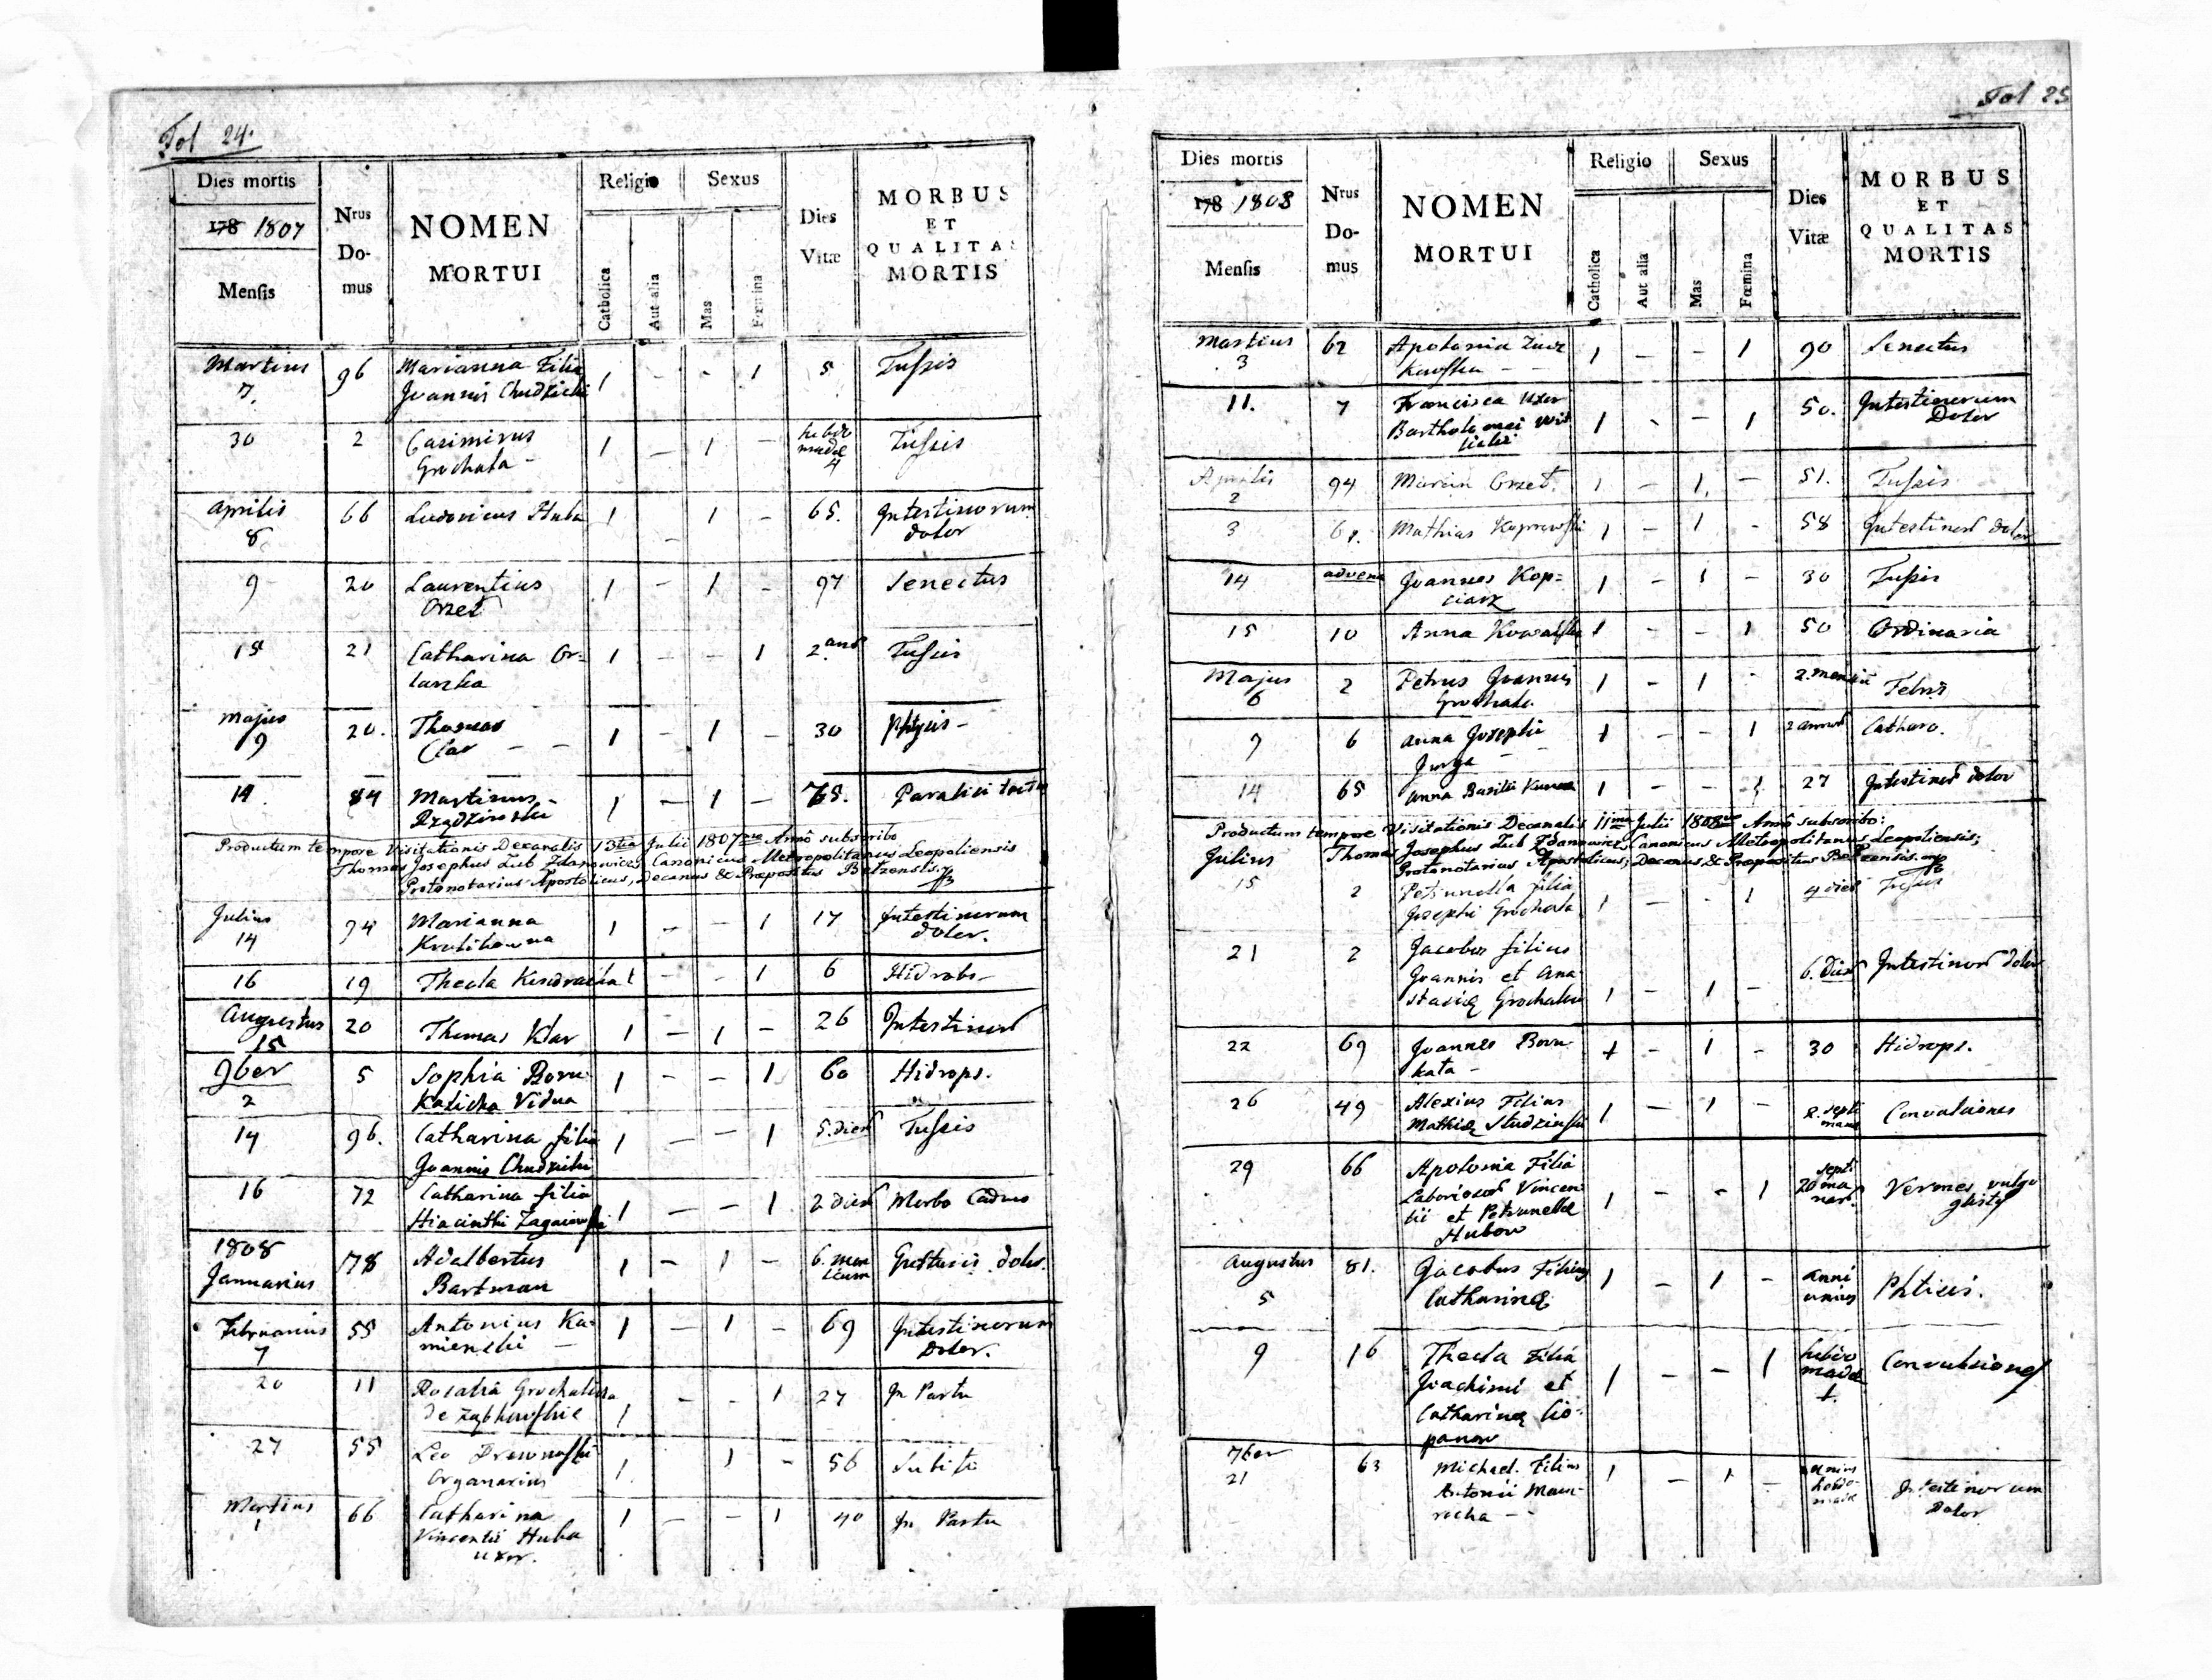 Fol 24.
Dies mortis
178 1807
Mensis
Nrus
Do-
mus
NOMEN
MORTUI
Religio
Sexus
Catholica
Aut alia
Mas
Fœmina
Dies
Vitæ
MORBUS
ET
QUALITAS
MORTIS
Martius 96 Marianna Filia 1 - - 1 5 Tussis
7. Joannis Chudzicki
30 2 Casimirus 1 - 1 - hebdo Tussis
Grochala - madæ
4
Aprilis 66 Ludovicus Huba 1 1 - 65. Intestinorum
8 dolor
9 20 Laurentius 1 - 1 - 97 Senectus
Orzeł
15 21 Catharina Or- 1 - - 1 2 Tussis
larzka
Majus 20. Thomas 1 - 1 - 30
9 Clar - -
14. 84 Martinus 1 - 1 - 75. Paralisi
Productum tempore Visitationis Decanalis 13tia Julii 1807mo Anno subscribo
Thomas Josephus Lub Zdanowicz Canonicus Metropolitanus Leopoliensis
Protonotarius Apostolicus, Decanus & Præpositus Belzensis.
Julius 94 Marianna 1 - - 1 17 Intestinorum
14 Krolikowna dolor.
16 19 Thecla 1 - - 1 6 Hidrops
Augustus 20 Thomas Klar 1 - 1 - 26
15
9ber 5 Sophia Boru- 1 - - 1 60 Hidrops.
2 Katicha Vidua
14 96. Catharina filia 1 - - 1 5. dier Tussis
Joannis Chudzicki
16 72 Catharina filia 1 - - 1 2 dier Morbo Caduco
Hiacinthi
1808 78 Adalbertus 1 - 1 - 6. men Gutturis dolor.
Januarius Bartman sium
Februarius 55 Antonius Ka- 1 - 1 - 69 Intestinorum
7 mienski - Dolor.
20 11 Rosalia 1 - - 1 27 In Partu
de
27 55 Leo 1 1 - 56 Subito
Organarius
Martius 66 Catharina 1 - - 1 40 In Partu
1 Vincentii Huba
uxor.
Fol 25
Dies mortis
178 1808
Mensis
Nrus
Do-
mus
NOMEN
MORTUI
Religio
Sexus
Catholica
Aut alia
Mas
Fœmina
Dies
Vitæ
MORBUS
ET
QUALITAS
MORTIS
Martius 62 Apolonia 1 - - 1 90 Senectus
3
11. 7 Francisca Uxor 1 - - 1 50. Intestinorum
Bartholomei Dolor
Aprilis 94 Marcin Orzeł. 1 - 1. - 51. Tussis
2
3 61. Mathias Koprowski 1 - 1 - 58 Intestinor dolor
14 advena Joannes Kop= 1 - 1 - 30 Tussis
ciarz
15 10 Anna Kowalska 1 - - 1 50 Ordinaria
Majus 2 Petrus Joannis 1 - 1 - 2. mensium Febris
6 Grochala
9 6 Anna Josephi 1 - - 1 2 annor Catharo.
Jurga - -
14 65 Anna Basilii 1 - - 1 27 Intestinor dolor
Productum tempore Visitationis Decanalis 11ma Julii 1808vo Anno subscribo:
Thomas Josephus Lub Zdanowicz Canonicus Metropolitanus Leopoliensis;
Protonotarius Apostolicus; Decanus & Præpositus Belzensis. mp
Julius 2 Petrunella filia 1 - - 1 4 dier Tussis
15 Josephi Grochala
21 2 Jacobus filius
Joannis et Ana- 6. Dier Intestinor dolor
stasiæ Grochalow 1 - 1 -
22 69 Joannes Boru- 1 - 1 - 30 Hidrops.
kata -
26 49 Alexius Filius 1 - 1 - 2. septi Convulsiones
Mathiæ Studzinski manar
29 66 Apolonia Filia septi
Laboriosor Vincen 1 - - 1 20 ma Vermes vulgo
tii et Petrunellæ nar. glisty
Hubow
Augustus 81. Jacobus Filius 1 - 1 - anni Phtisis.
5 Catharinæ unius
9 16 Thecla Filia 1 - - 1 hebdo Convulsiones
Joachimi et madæ
Catharinæ Cio- 1.
panow
7ber 63 Michael. Filius 1 - 1 - unius Intestinorum
21 Antonii Mau- hebdo- Dolor
rocha - - madæ